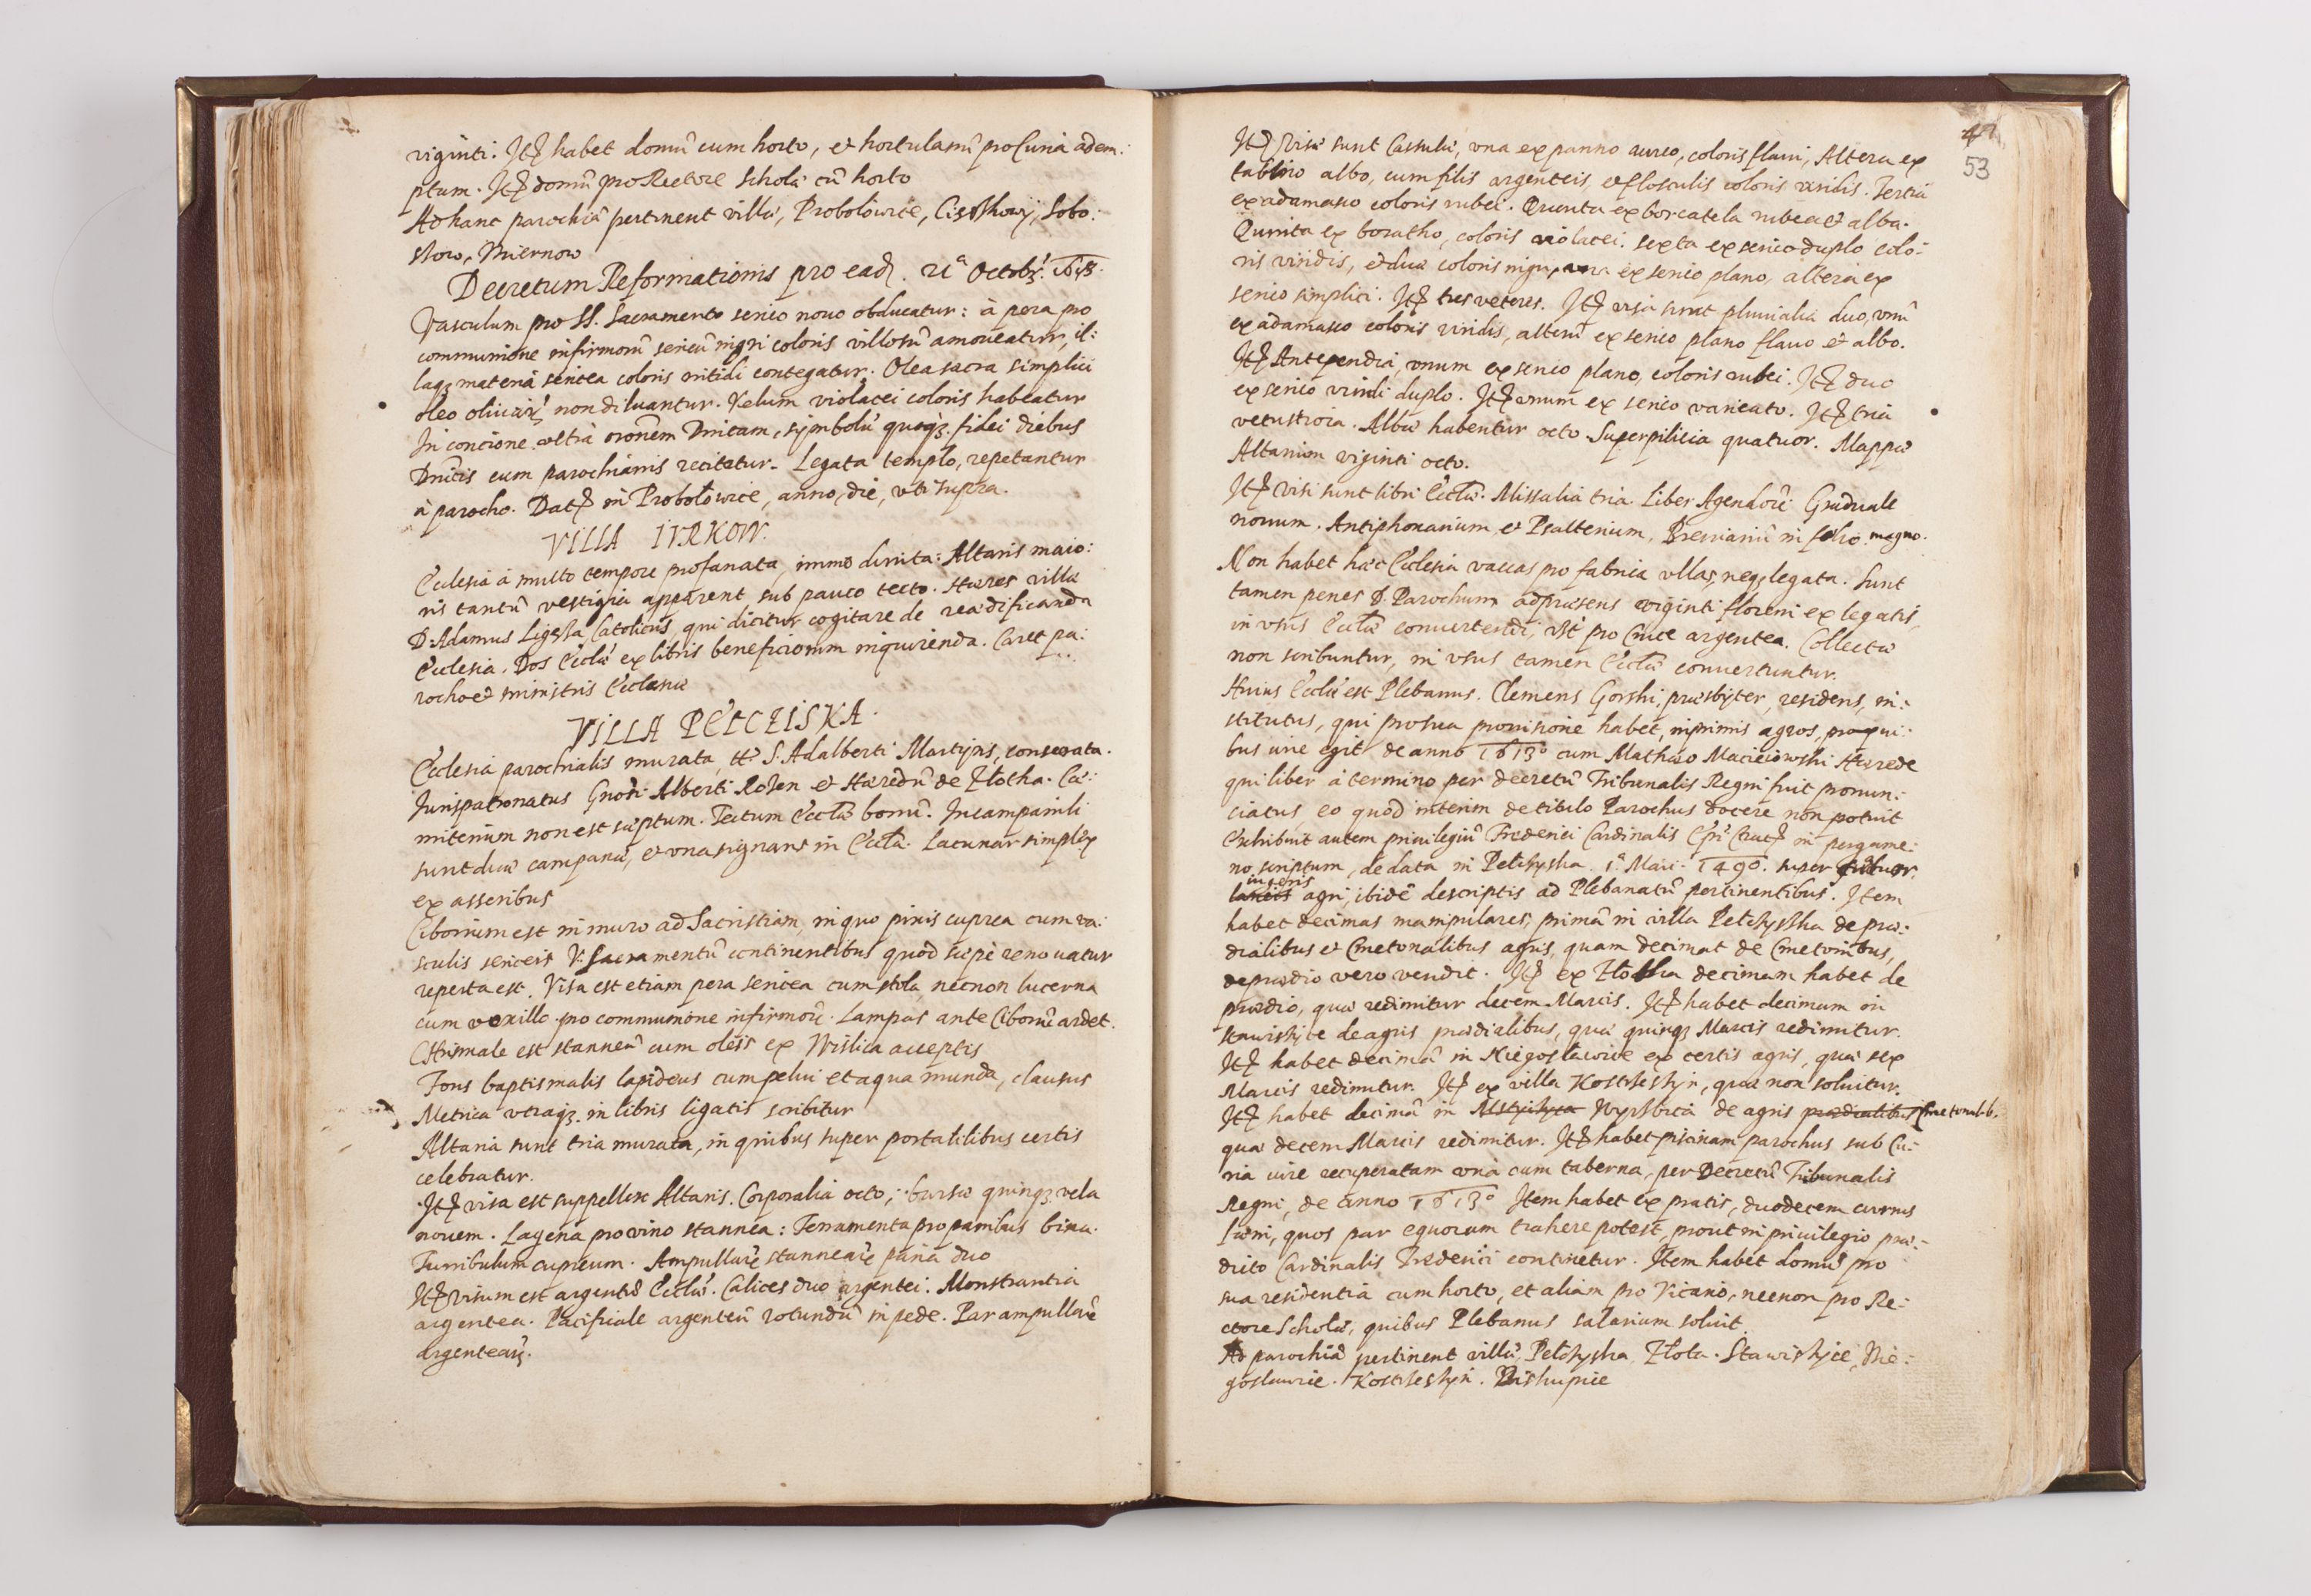 viginti. Itẽ habet domũ cum horto, et hortulanũ pro Curia adem:
ptum. Itẽ domũ pro Rectore Scholæ cũ horto
Ad hanc parochiã pertinent villæ, Probołowice, Ciesshowy, Sobo:
słow, Miernow
Decretum Reformationis pro ead. 21ª Octobr. 1618.
Vasculum pro SS. Sacramento serico nouo obducatur: à pera pro
communione infirmorũ sericũ nigri coloris villosũ amoueatur, il:
laq; materia sericea coloris nitidi contegatur. Olea sacra simplici
oleo oliuarũ non diluantur. Velum violacei coloris habeatur
In concione vltra orõnem Dnicam, symbolũ quoq; fidei diebus
Dnicis cum parochianis recitetur. Legata templo, repetantur
à parocho. Datẽ in Probołowice, anno, die, vti supra.
VILLA IVRKOW.
Ecclesia à multo tempore profanata, immo diruta: Altaris maio:
ris tantũ vestigia apparent sub pauco tecto. Hæres villæ
D. Adamus Ligęza Catolicus, qui dicitur cogitare de reædificanda
Ecclesia. Dos Ecclæ ex libris beneficiorum inquirenda. Caret pa:
rocho et ministris Ecclesiæ
VILLA PEŁCZISKA.
Ecclesia parochialis murata, ttº S. Adalberti Martyris, consecrata.
Iurispatronatus Gnosi Alberti Rozen et Hæredũ de Złotha. Cæ:
miterium non est sæptum. Tectum Ecclæ bonũ. In campanili
sunt duæ campanæ, et vna signans in Ecclã. Lacunar simplex
ex asseribus
Ciborium est in muro ad Sacristiam, in quo pixis cuprea cum va:
sculis sericeis V. Sacramentũ continentibus quod sæpè renouatur
reperta est. Visa est etiam pera sericea cum stola, necnon lucerna
cum vexillo pro communione infirmorũ. Lampas ante Ciboriũ ardet.
Chrismale est stanneũ cum oleis ex Wislica acceptis
Fons baptismalis lapideus cum pelui et aqua munda, clausus
Metrica vtraq; in libris ligatis scribitur
Altaria sunt tria murata, in quibus super portatilibus certis
celebratur.
Itẽ visa est suppellex Altaris. Corporalia octo, bursæ quinq; vela
nouem. Lagena pro vino stannea: Ferramenta pro panibus bina.
Turribulum cupreum. Ampullarũ stannearũ paria duo
Itẽ visum est argentũ Ecclæ. Calices duo argentei. Monstrantia
argentea. Pacificale argenteũ rotundũ in pede. Par ampullarũ
argentearũ.
47
53
Itẽ visæ sunt Casulæ, vna ex panno aureo, coloris flaui, Altera ex
tabino albo, cum filis argenteis, et flosculis coloris viridis. Tertia
ex adamasco coloris rubei. Quarta ex borcatela rubea et alba.
Quinta ex boratho, coloris violacei. Sexta ex serico duplo colo:
ris viridis, et duæ coloris nigri, vna ex serico plano, altera ex
serico simplici. Itẽ tres veteres. Itẽ visa sunt pluuialia duo, vnũ
ex adamasco coloris viridis, alterũ ex serico plano flauo et albo.
Itẽ Antependia, vnum ex serico plano, coloris rubei. Itẽ duo
ex serico viridi duplo. Itẽ vnum ex serico varieato. Itẽ tria
vetustiora. Albæ habentur octo. Superpilicia quatuor. Mappæ
Altarium viginti octo.
Itẽ visi sunt libri Ecclæ. Missalia tria. Liber Agendorũ. Graduale
nouum. Antiphonarium, et Psalterium, Breuiariũ in folio magno.
Non habet hæc Ecclesia vaccas pro fabrica vllas, neq; legata. Sunt
tamen penes D. Parochum ad præsens viginti floreni ex legatis,
in vsus Ecclæ conuertendi, vst pro Cruce argentea. Collectæ
non scribuntur, in vsus tamen Ecclæ conuertuntur.
Huius Ecclæ est Plebanus. Clemens Gorski, præsbyter, residens, in:
stitutus, qui pro sua prouisione habet, inprimis agros, pro qui:
bus iure egit de anno 1613º cum Mathæo Macieiowski Hærede
qui liber à termino per decretũ Tribunalis Regni fuit pronun:
ciatus, eo quod interim de titulo Parochus docere non potuit
Exhibuit autem priuilegiũ Frederici Cardinalis Epi Cracẽ in pergame:
no scriptum, de data in Pełczyska 1ª Maii. 1490. super
iugeris
laneis agri, ibidẽ descriptis ad Plebanatũ pertinentibus. Item
habet decimas manipulares, primã in villa Pełczysska de præ:
dialibus et Cmetonalibus agris, quam decimat de Cmetonibus,
de prædio vero vendit. Itẽ ex Złotha decimam habet de
prædio, quæ redimitur decem Marcis. Itẽ habet decimam in
Stawiszyce de agris prædialibus, quæ quinq; Marcis redimitur.
Itẽ habet decimã in Niegosławice ex certis agris, quæ sex
Marcis redimitur. Itẽ ex villa Kostrzeszyn, quæ non soluitur.
Itẽ habet decimã in Wyszbica de agris prædialibus Cmetonalib.
quæ decem Marcis redimitur. Itẽ habet piscinam parochus sub Cu:
ria iure recuperatam vnà cum taberna, per Decretũ Tribunalis
Regni, de anno 1613º Item habet ex pratis, duodecem currus
fæni, quos par equorum trahere potest, prout in priuilegio præ:
dicto Cardinalis Frederici continetur. Item habet domũ pro
sua residentia cum horto, et aliam pro Vicario, necnon pro Re:
ctore Scholæ, quibus Plebanus salarium soluit.
Ad parochiã pertinent villæ, Pełczyska, Złota. Stawiszyce, Nie:
gosławice. Kostrzeszyn. Biskupice